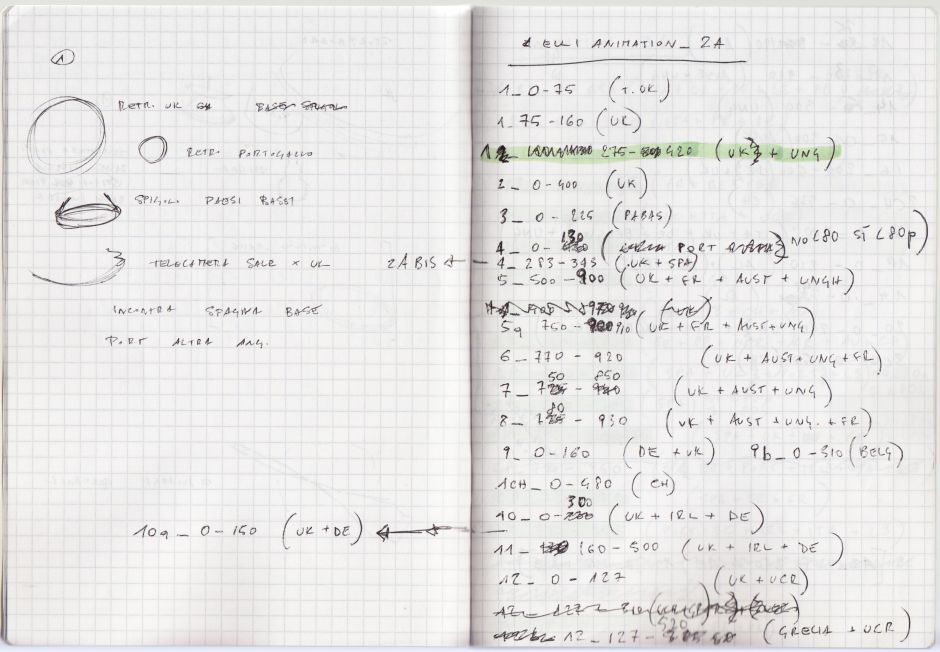 1
RETR. UK
RETRO PORTOGALLO
SPIGOLI PAESI BASSI
TELECAMERA SALE X UK
2A BIS
INCONTRA SPAGNA BASE
PORT ALTRA ANG.
10a_ 0-150 (UK + DE)
ANIMATION_ 2A
1_ 0-75 (T.UK)
1_ 75-160 (UK)
275- 420 (UK + UNG)
2_ 0-400 (UK)
3_ 0-225 (PABAS)
4_ 0-130 ( PORT ) NO L80 SÌ L80p)
4_ 283-345 (.UK + SPA)
5_ 500-900 (UK + FR + AUST + UNGH)
5a 750- 910 (UK + FR + AUST + UNG)
6_ 770 - 920 (UK + AUST + UNG + FR)
50 850
7_ 7 - (UK + AUST + UNG)
80
8_ - 930 (UK + AUST + UNG. + FR)
9_ 0-160 (DE + UK) 9b_ 0-510 (BELG)
1CH_ 0-480 (CH)
300
10_ 0- (UK + IRL + DE)
11_ 160-500 (UK + IRL + DE)
12_ 0-127 (UK + UCR)
520
12_ 127- (GRECIA + UCR)